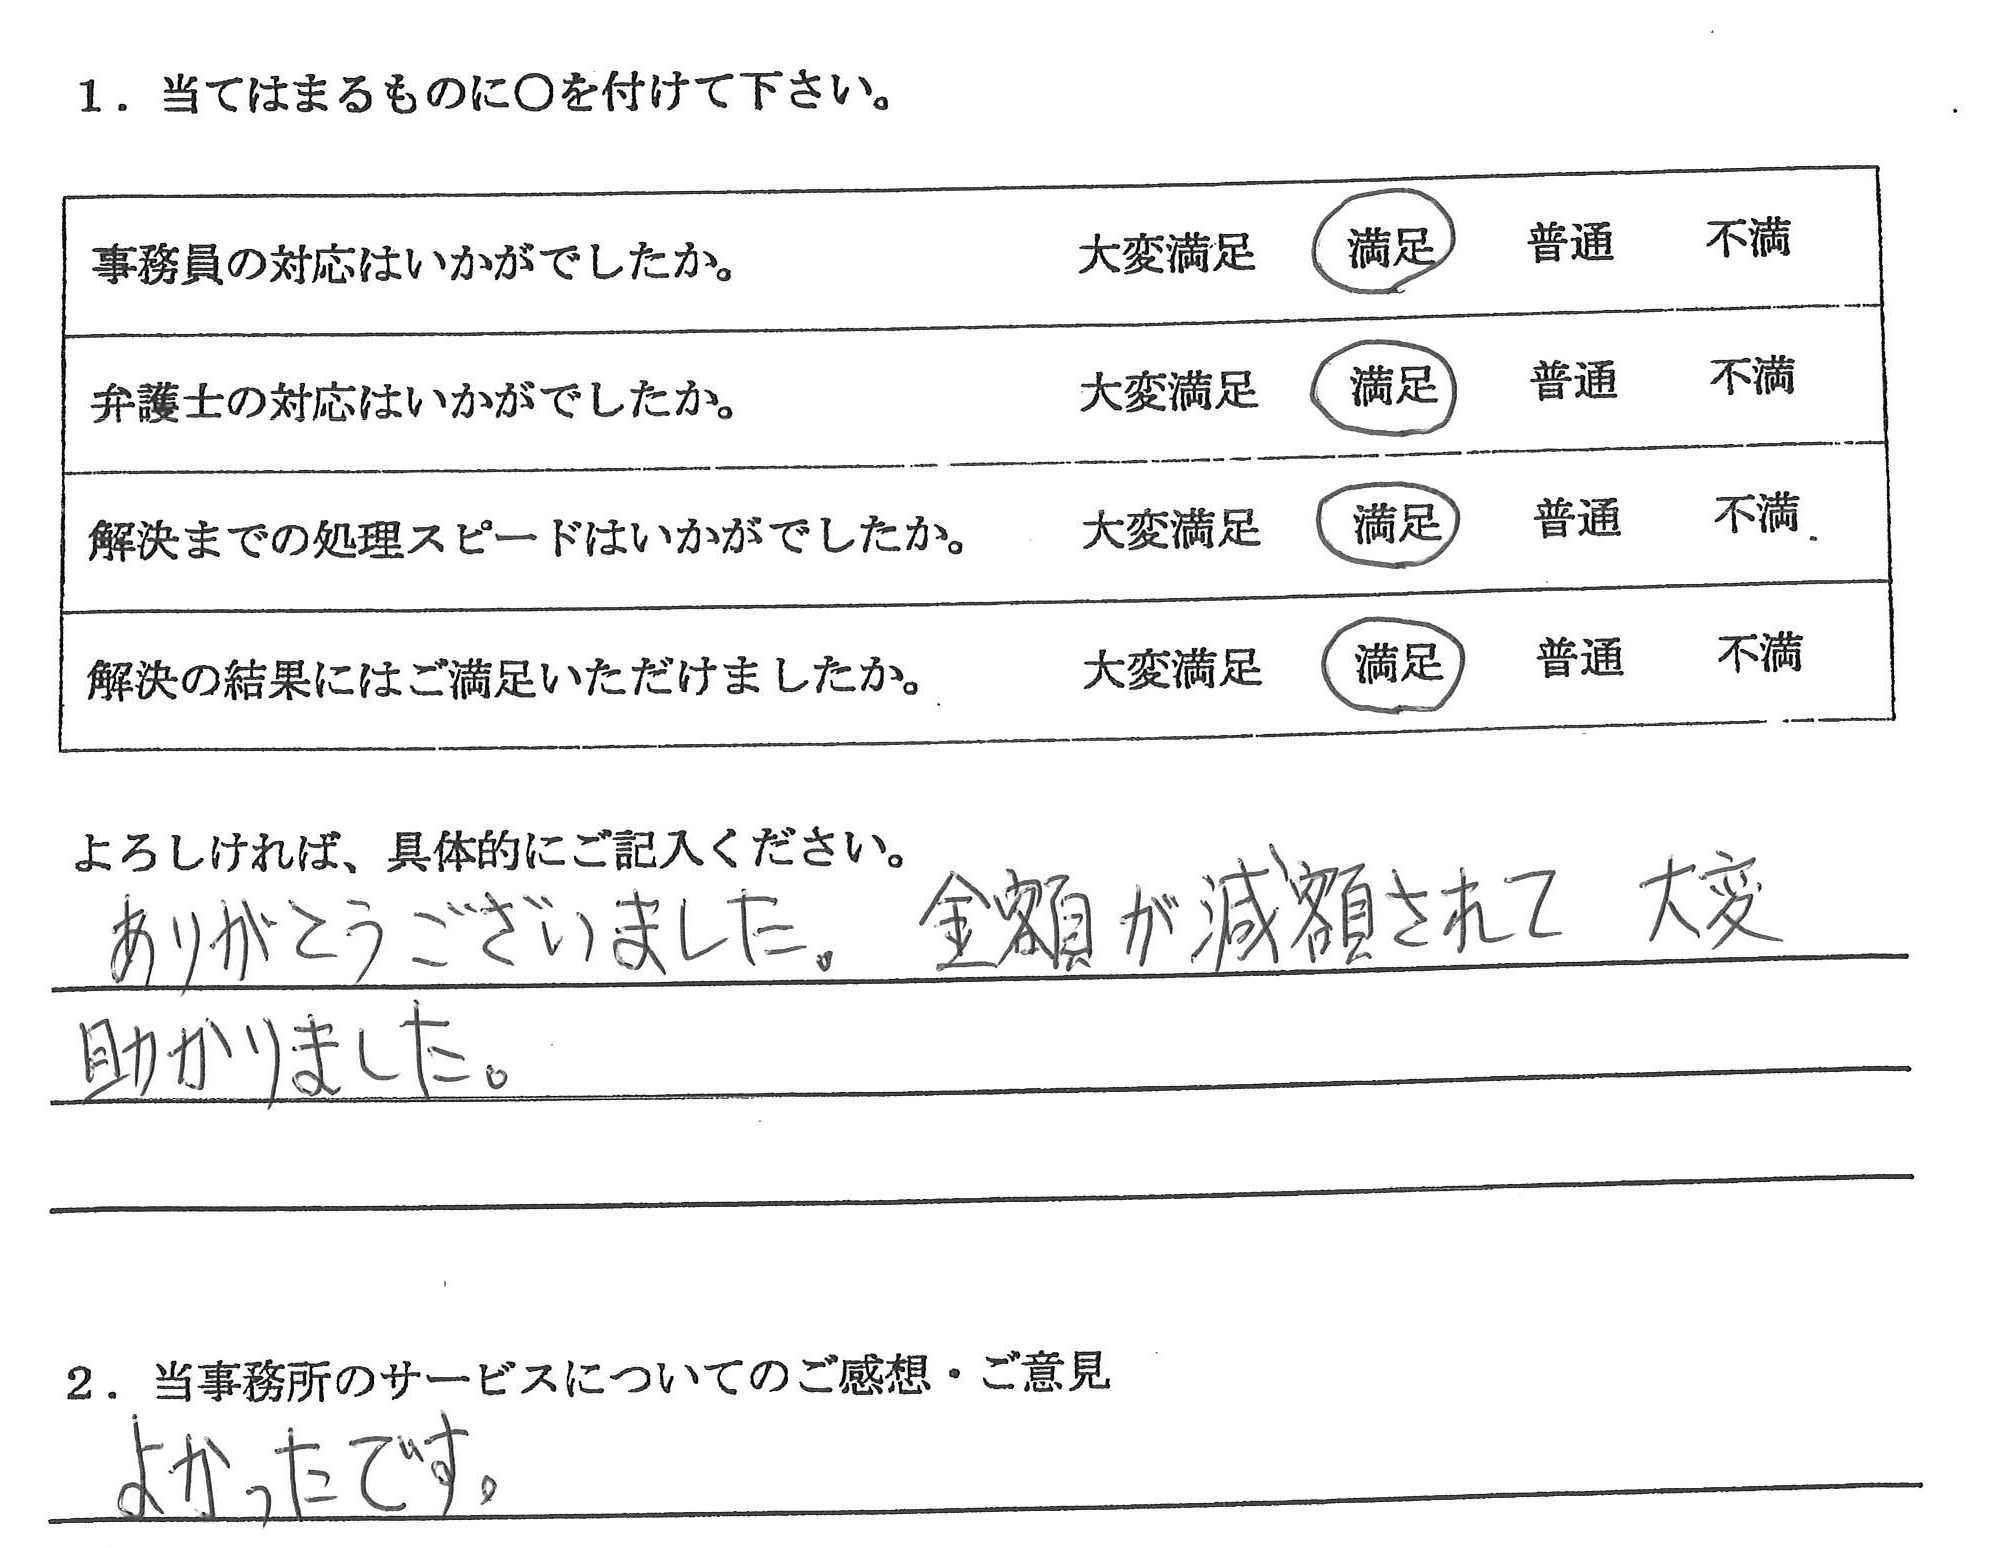 1．当てはまるものに〇を付けて下さい。
事務員の対応はいかがでしたか。 大変満足 満足 普通 不満
弁護士の対応はいかがでしたか。 大変満足 満足 普通 不満
解決までの処理スピードはいかがでしたか。 大変満足 満足 普通 不満
解決の結果にはご満足いただけましたか。 大変満足 満足 普通 不満
よろしければ、具体的にご記入ください。
ありがとうございました。 金額が減額されて 大変
助かりました。
2．当事務所のサービスについてのご感想・ご意見
よかったです。